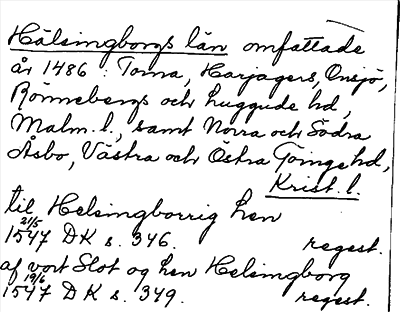 Hälsingborgs län omfattade
år 1486: Torna, Harjagers, Onsjö,
Rönnebergs och Luggude hd,
Malm. l., samt Norra och Södra
Åsbo, Västra och Östra Göinge hd,
Krist. l.
til Helsingborrig hen
21/5
1547 DK s. 346. regest.
af vort Slot og hen Helsingborg
19/6
1547 DK s. 349. regest.